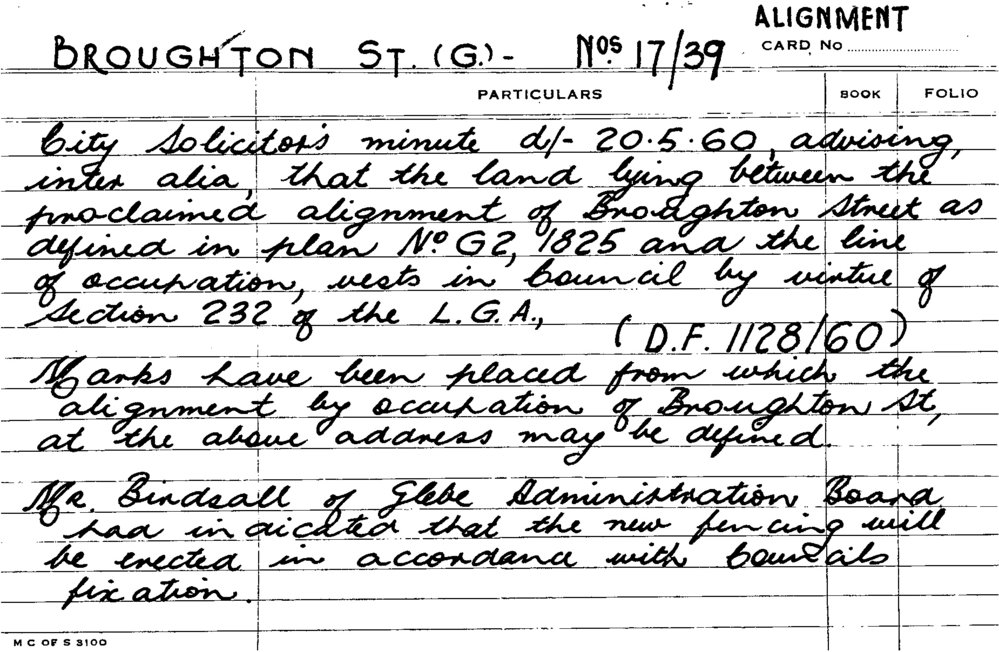 ALIGNMENT
BROUGHTON ST. (G.) - Nos. 17/39
CARD No
PARTICULARS BOOK FOLIO
City Solicitor's minute d/- 20.5.60, advising,
inter alia, that the land lying between the
proclaimed alignment of Broughton Street as
defined in plan No G2, 1825 and the line
of occupation, vests in Council by virtue of
Section 232 of the L.G.A.,
(D.F. 1128/60)
Marks have been placed from which the
alignment by occupation of Broughton St,
at the above address may be defined.
Mr. Birdsall of Glebe Administration Board
had indicated that the new fencing will
be erected in accordand with Councils
fixation.
M C OF S 3100